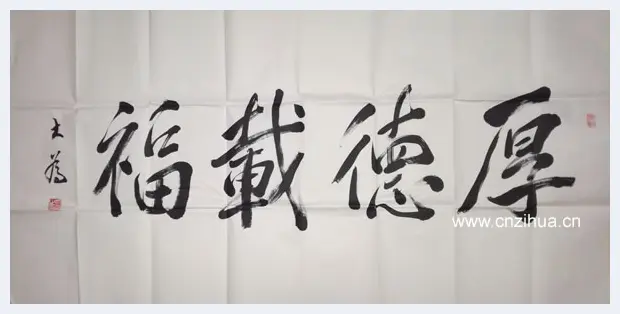 厚德載福
大為
www.cnzihua.cn